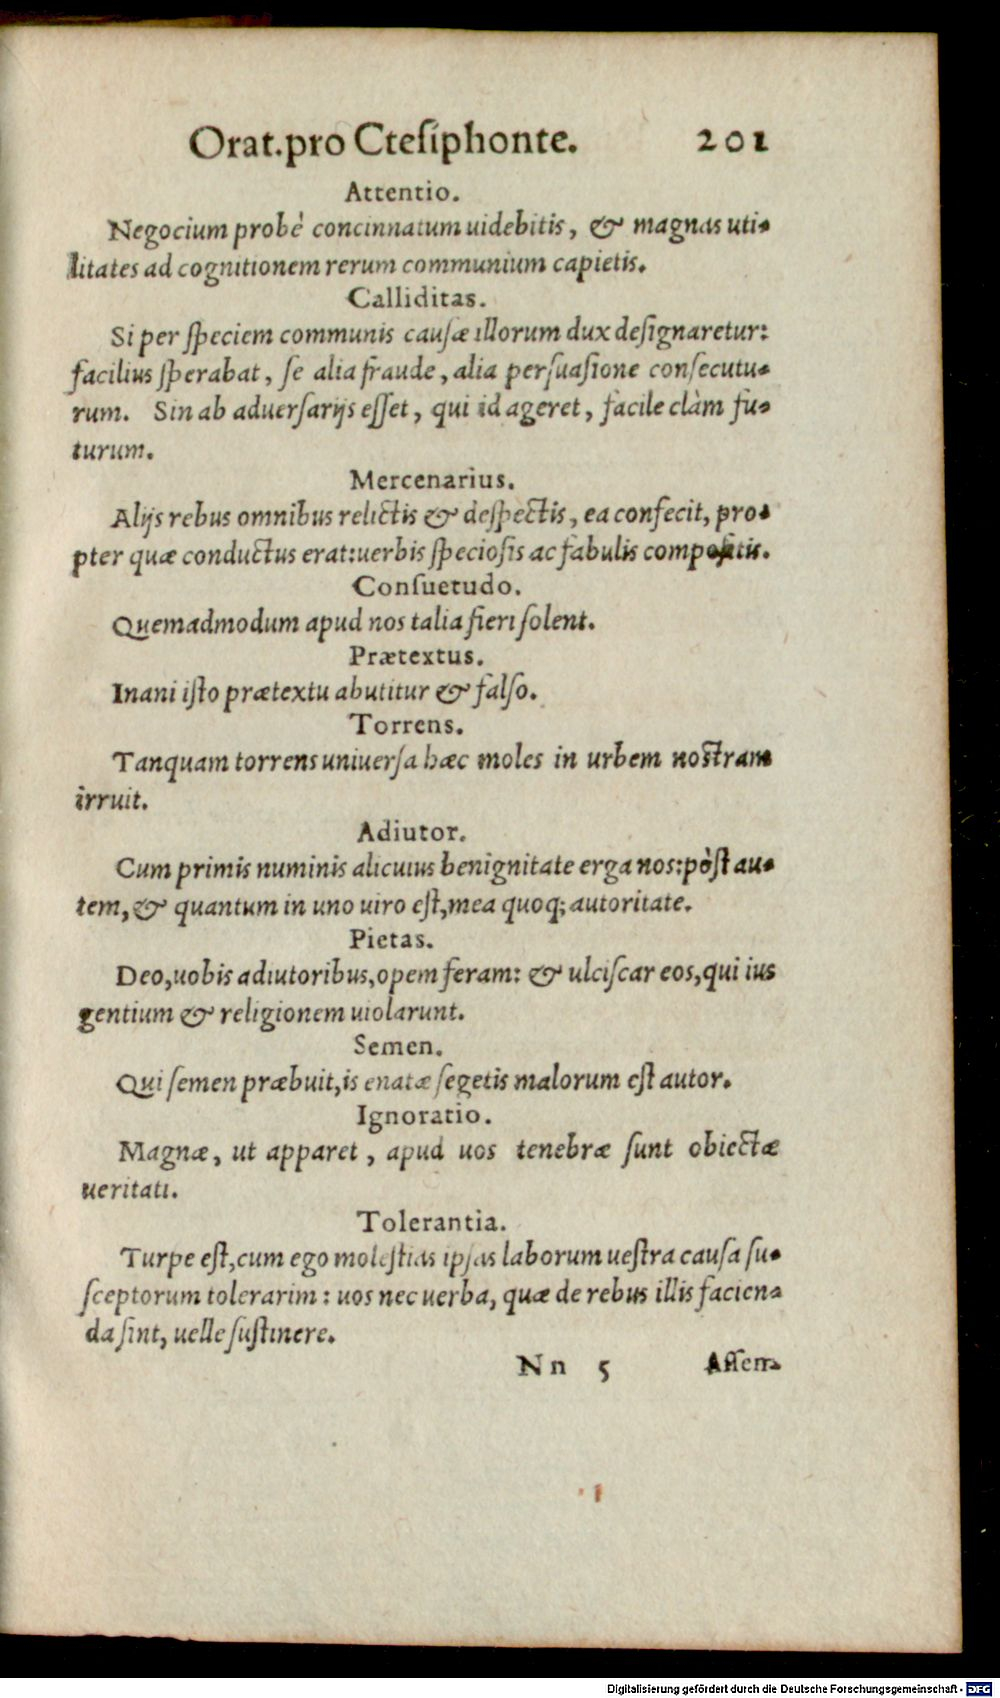 Orat. pro Cteſiphonte. 201
Attentio.
Negocium probè concinnatum uidebitis, & magnas uti-
litates ad cognitionem rerum communium capietis.
Calliditas.
Si per ſpeciem communis cauſæ illorum dux deſignaretur:
facilius ſperabat, ſe alia fraude, alia perſuaſione conſecutu-
rum. Sin ab aduerſarijs eſſet, qui id ageret, facile clàm fu-
turum.
Mercenarius.
Alijs rebus omnibus relictis & deſpectis, ea confecit, pro-
pter quæ conductus erat: uerbis ſpecioſis ac fabulis compoſitis.
Conſuetudo.
Quemadmodum apud nos talia fieri ſolent.
Prætextus.
Inani iſto prætextu abutitur & falſo.
Torrens.
Tanquam torrens uniuerſa hæc moles in urbem noſtram
irruit.
Adiutor.
Cum primis numinis alicuius benignitate erga nos: pòſt au-
tem, & quantum in uno uiro eſt, mea quoq; autoritate.
Pietas.
Deo, uobis adiutoribus, opem feram: & ulciſcar eos, qui ius
gentium & religionem uiolarunt.
Semen.
Qui ſemen præbuit, is enatæ ſegetis malorum eſt autor.
Ignoratio.
Magnæ, ut apparet, apud uos tenebræ ſunt obiectæ
ueritati.
Tolerantia.
Turpe eſt, cum ego moleſtias ipſas laborum ueſtra cauſa ſu-
ſceptorum tolerarim: uos nec uerba, quæ de rebus illis facien-
da ſint, uelle ſuſtinere.
Nn 5 Aſſen-
Digitalisierung gefördert durch die Deutsche Forschungsgemeinschaft - DFG